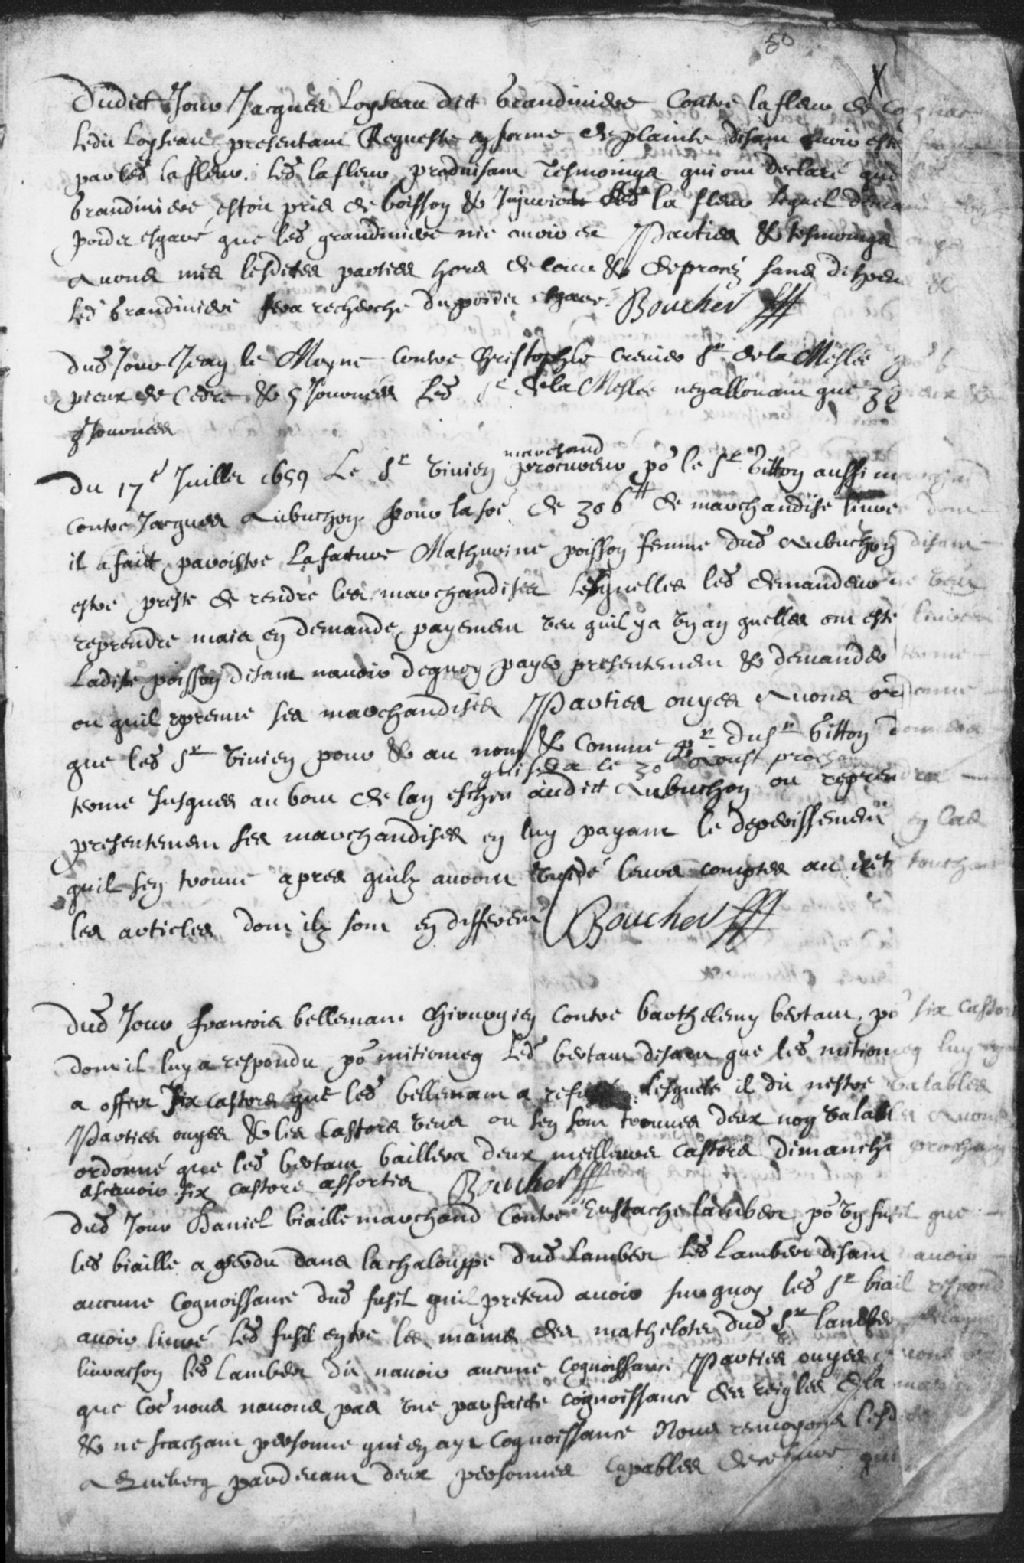 50
Dudict Jour Jacques Loyseau dict Grandiniere Contre lafleur de Cognac
ledit Loyseau presentant Requeste en forme de plainte disant avoir esté
par led lafleur. Led lafleur produisant Tesmoings qui ont declaré que
Grandiniere estoit pris de boisson & Injurioit led la fleur lequel
poider esgaré que led grandiniere nie avoir eu Parties & tesmoings ouys
Avons mis lesdites parties hors de cour & de procez sans despens &
Led Grandiniere fera recherche du poider esgaré. Boucher
Dud Jour Jean le Moyne Contre Christophle Crevier Sr de la Meslee po 6
pieux de Cedre & 5 Journees Led Sr de la Meslee nallouant que 32
3 Journees
marchand
Du 17e Juillet 1659 Le Sr Vivien procureur po le Sr Vitton aussi marchand
contre Jacques Aubuchon pour la soe de 306 tt de marchandise livree dont
il a faict paroistre La facture Mathurine poisson femme dud Aubuchon disant
estre preste de rendre les marchandises Lesquelles led demandeur ne veut
reprendre mais en demande payement veu quil ya un an quelles ont esté livrees
Ladite poisson disant navoir dequoy payer presentement & demander terme
ou quil reprenne ses marchandises Parties ouyes Avons ordonne
que led Sr Vivien pour & au nom & comme pr dud Sr Vitton donnera
quil sera le 30 Aoust prochain
terme Jusques au bout de lan escheu audict Aubuchon ou reprendra
presentement ses marchandises en luy payant le deperissement en cas
quil sen trouve apres quilz auront vuidé leurs comptes au sujet touchant
les articles dont ilz sont en different Boucher
Dud Jour francois bellemant Chirurgien Contre barthelemy bertaut po six castors
dont il luy a respondu po mitiomeg Led bertaut disant que led mitiomeg luy
a offert six castors que led bellemant a refusé lesquels il dit nestre valables
Parties ouyes & les Castors veus ou sen sont trouvés deux non valables Avons
ordonné que led bertaut baillera deux meilleurs castors dimanche prochain
ascavoir six castors assortis Boucher
Dud Jour Daniel biaille marchand Contre Eustache lambert po un fusil que
led biaille a perdu dans la chalouppe dud Lambert Led Lambert disant navoir
aucune Cognoissance dud fusil quil pretend avoir surquoy led Sr biail respond
avoir livré led fusil entre les mains des mathelots dud Sr lambert
livraison led Lambert dit navoir aucune Cognoissance Parties ouyes Avons
que coe nous navons pas une parfaicte cognoissance des reigles de la
& ne scachant personne qui en ayt Cognoissance Nous renvoyons lesd
A Quebecq pardevant deux personnes Capables de ce faire qui